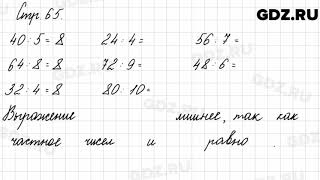 GDZ.RU
Стр. 65.
40 : 5 = 8 24 : 4 = 56 : 7 =
64 : 8 = 8 72 : 9 = 48 : 6 =
32 : 4 = 8 80 : 10 =
Выражение лишнее, так как
частное чисел и равно .